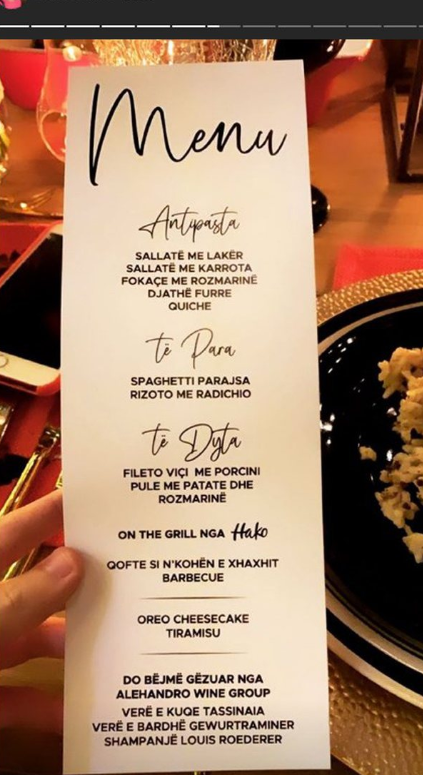 Menu
Antipasta
SALLATË ME LAKËR
SALLATË ME KARROTA
FOKAÇE ME ROZMARINË
DJATHË FURRE
QUICHE
të Para
SPAGHETTI PARAJSA
RIZOTO ME RADICHIO
të Dyta
FILETO VIÇI ME PORCINI
PULE ME PATATE DHE
ROZMARINË
ON THE GRILL NGA Hako
QOFTE SI N'KOHËN E XHAXHIT
BARBECUE
OREO CHEESECAKE
TIRAMISU
DO BËJMË GËZUAR NGA
ALEHANDRO WINE GROUP
VERË E KUQE TASSINAIA
VERË E BARDHË GEWURTRAMINER
SHAMPANJË LOUIS ROEDERER